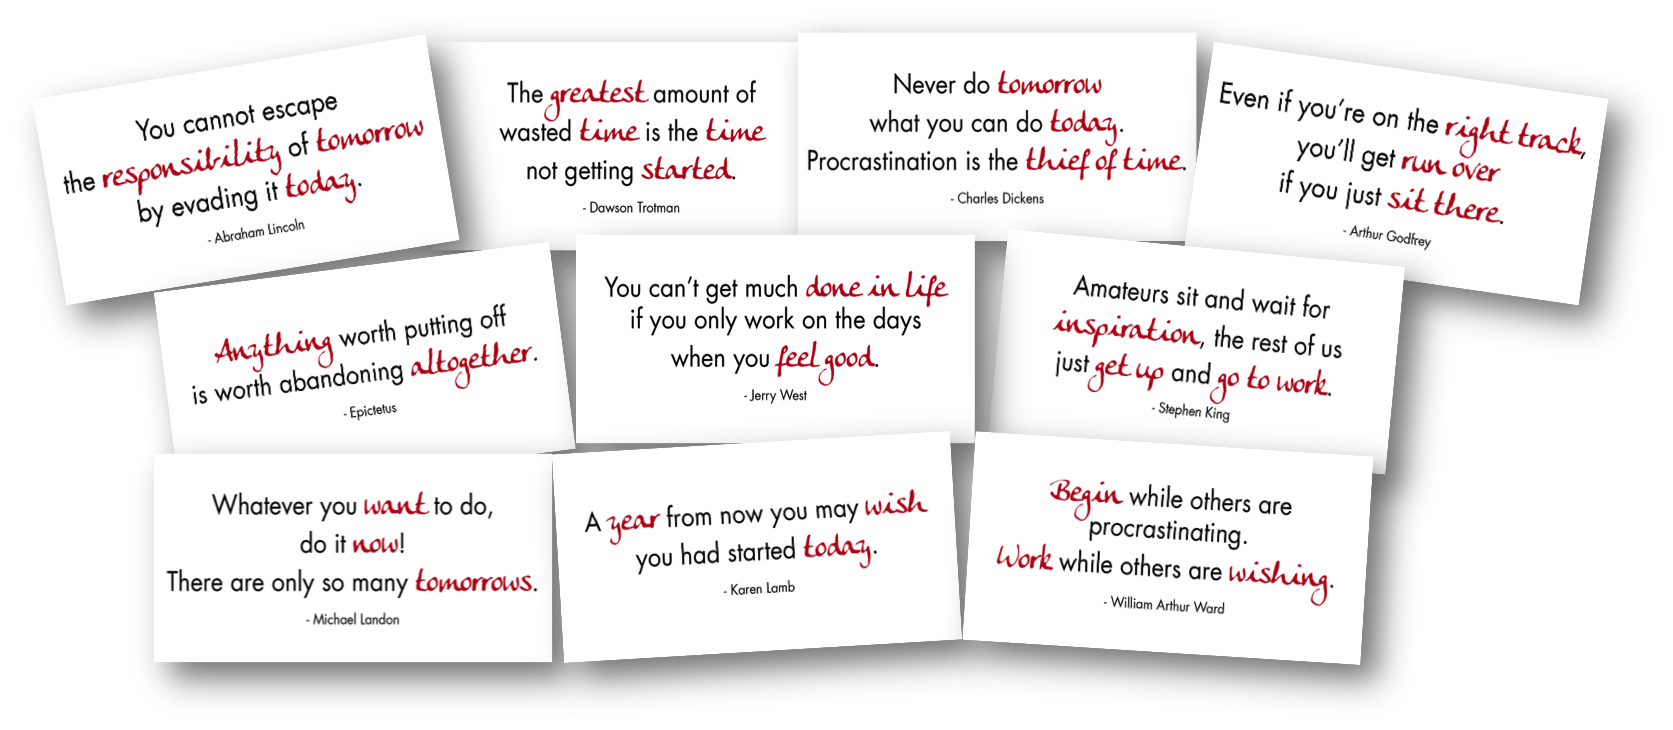 You cannot escape
the responsibility of tomorrow
by evading it today.
- Abraham Lincoln
The greatest amount of
wasted time is the time
not getting started.
- Dawson Trotman
Never do tomorrow
what you can do today.
Procrastination is the thief of time.
- Charles Dickens
Even if you're on the right track,
you'll get run over
if you just sit there.
- Arthur Godfrey
Anything worth putting off
is worth abandoning altogether.
- Epictetus
You can't get much done in life
if you only work on the days
when you feel good.
- Jerry West
Amateurs sit and wait for
inspiration, the rest of us
just get up and go to work.
- Stephen King
Whatever you want to do,
do it now!
There are only so many tomorrows.
- Michael Landon
A year from now you may wish
you had started today.
- Karen Lamb
Begin while others are
procrastinating.
Work while others are wishing.
- William Arthur Ward